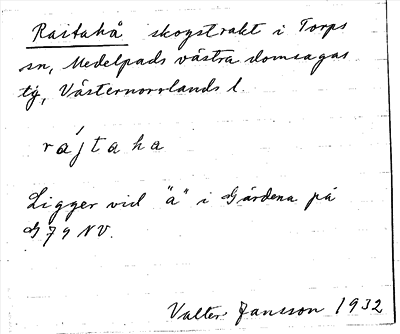 Raitahå skogstrakt i Torps
sn, Medelpads västra domsagas
tg, Västernorrlands l.
rájtaha
Ligger vid "a" i Gärdena på
G 79 NV.
Valter Jansson 1932